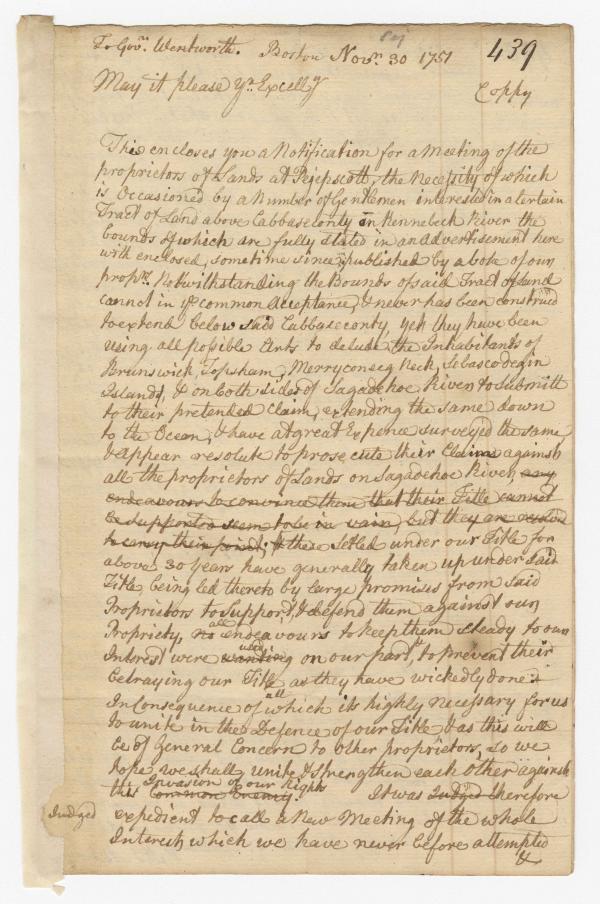 To Govr. Wentworth. Boston Novr. 30 1751 439
May it please Yr. Excelly
Coppy
This encloses you a Notification for a Meeting of the
proprietors of Lands at Pejepscott, the Necessity of which
is Occasioned by a Number of Gentlemen interested in a Certain
Tract of Land above Cabbaseconty in Kennebeck River the
bounds of which are fully stated in an Advertisement here
with enclosed, sometime since published by a Vote of our
propry. Notwithstanding the Bounds of said Tract of Land
cannot in ye. common Acceptance, & never has been construed
to extend below said Cabbaseconty, yet they have been
using all possible Arts to delude the Inhabitants of
Brunswick, Topsham, Merryconseg Neck, Sebascodegin
Islands, & on both sides of Sagadehoc River to submitt
to their pretended Claim, extending the same down
to the Ocean, & have at great Expence surveyed the same
& appear resolute to prosecute their Claims against
all the proprietors of Lands on Sagadehoc River, any
endeavours to convince them that their Title cannot
be supported seem to be in vain, but they are resolved
to carry their point; & these Setled under our Title for
above 30 Years have generally taken up under said
Title, being led thereto by large promises from said
Proprietors to Support, & defend them against our
Propriety, no all endeavours to keep them steady to our
Interest were wanting used on our part, to prevent their
betraying our Title as they have wickedly done:
In Consequence of all which its highly necessary for us
to unite in the Defence of our Title & as this will
be of General Concern to other proprietors, so we
hope we shall unite & strengthen each other against
this Common Enemy. Invasion of our Rights It was Judged therefore
Judged
expedient to call a New Meeting of the whole
Interest, which we have never before attempted
&